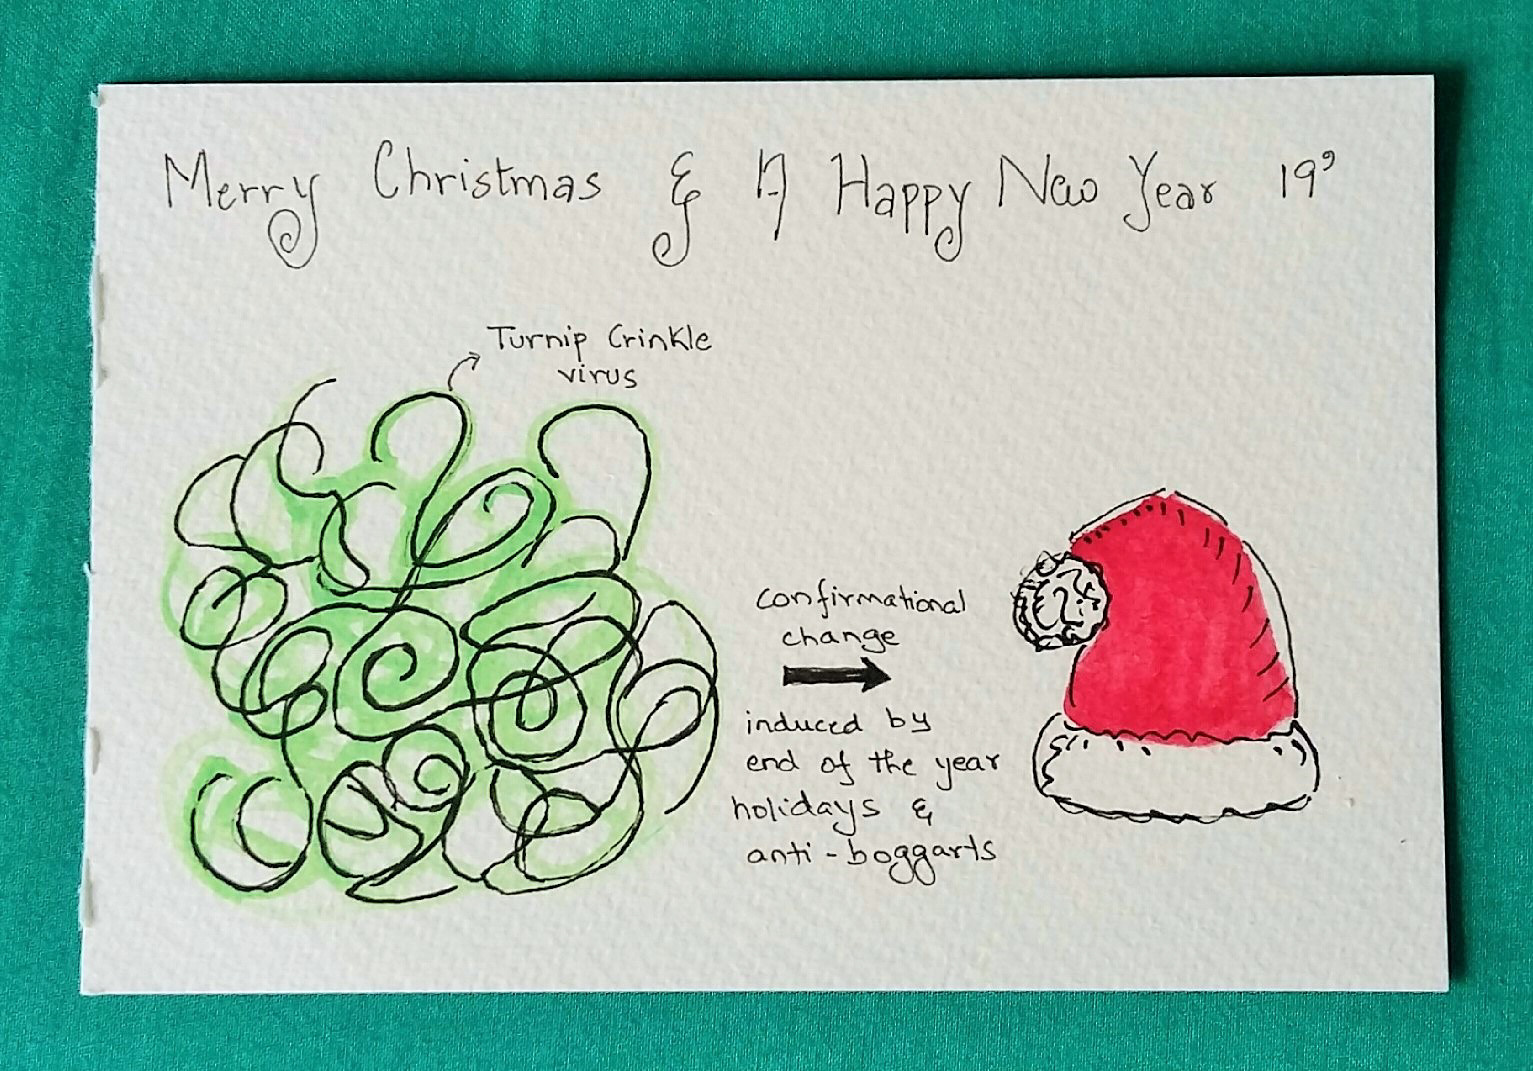 Merry Christmas & A Happy New Year 19'
Turnip Crinkle
virus
confirmational
change
induced by
end of the year
holidays &
anti-boggarts